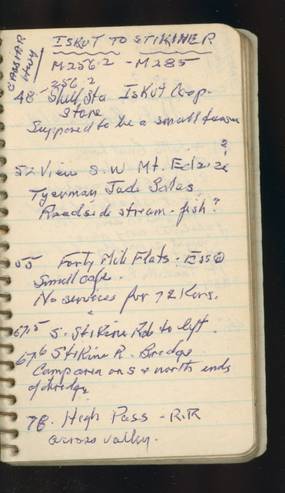 CASSIAR HWY
ISKUT TO STIKINE R
M256.2 - M285
256.2
48 Shell Sta Iskut Coop.
Store
Supposed to be a small
?
52 View S.W Mt. Edziza
Jade Sales
Roadside stream - fish?
55 Forty Mile Flats - Esso
Small cafe.
No services for 72 Kms.
67.5 S. Stikine Rdb to left.
67.6 Stikine R. Bridge
Camp area on S + north ends
of bridge
78. High Pass - R.R
across valley.